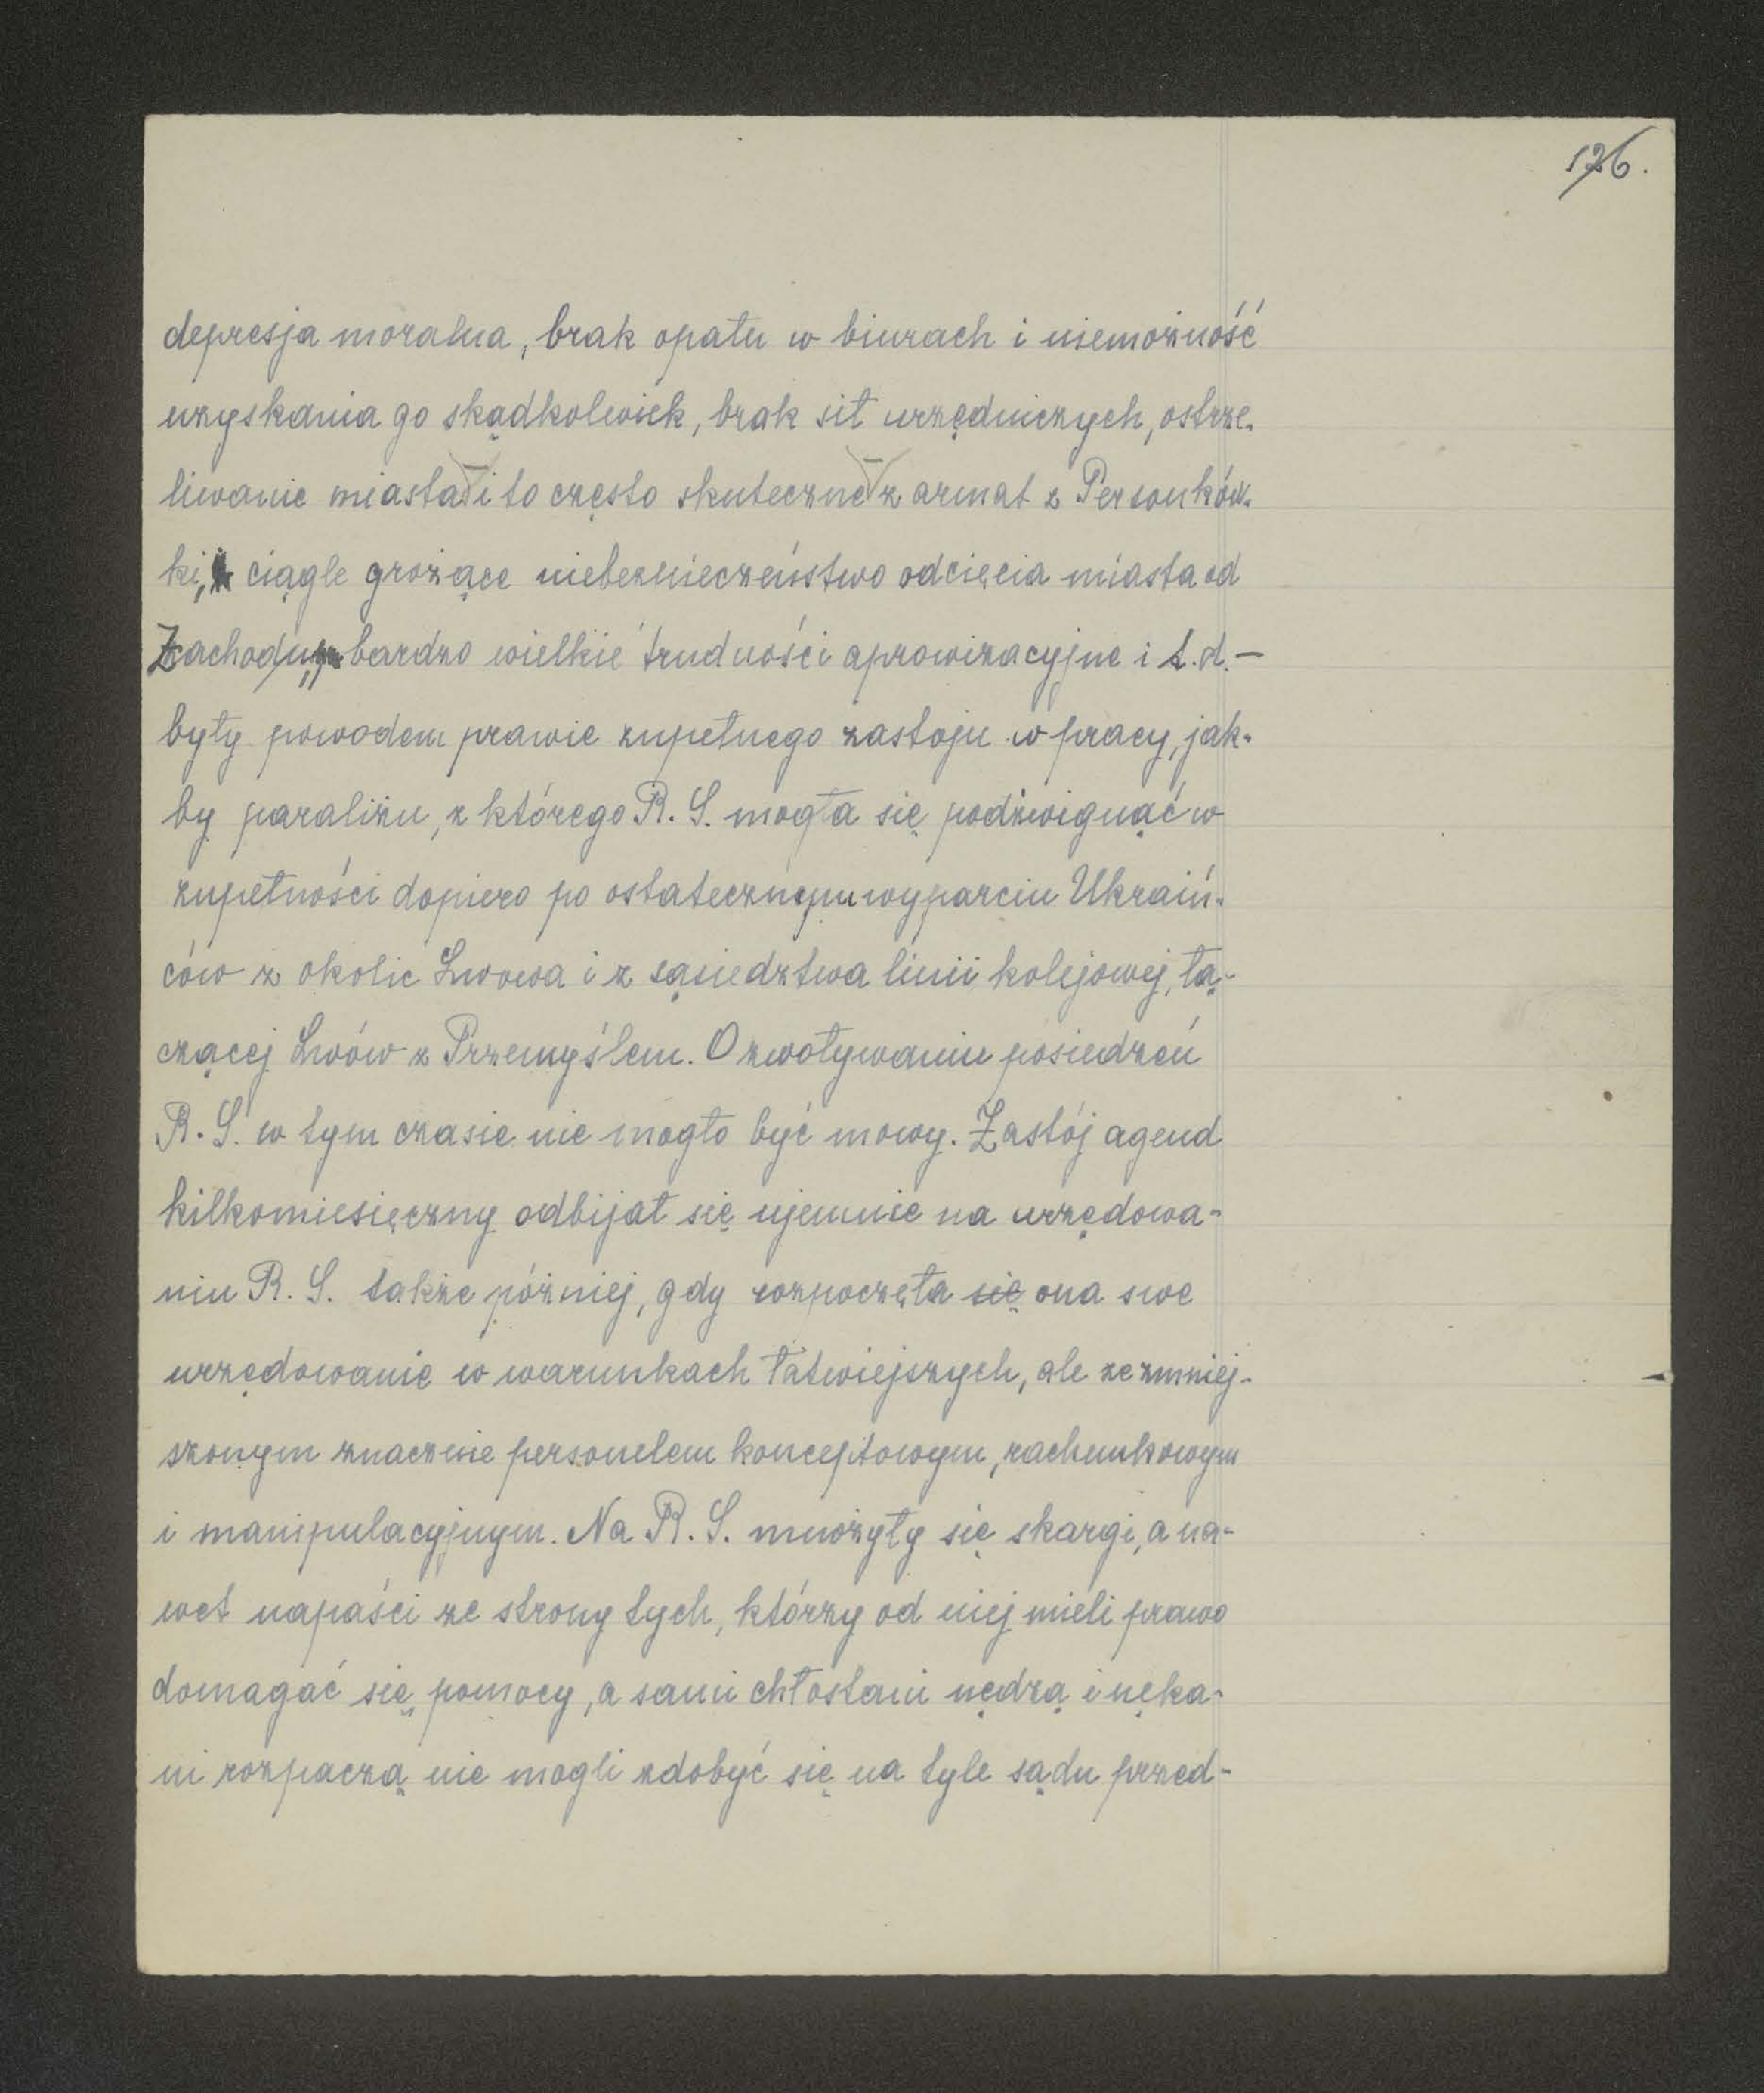 126.
depresja moralna, brak opału w biurach i niemożność
uzyskania go skądkolwiek, brak sił urzędniczych, ostrze-
liwanie miasta i to często skuteczne z armat z Persenków-
ki, ciągle grożące niebezpieczeństwo odcięcia miasta od
Zachodu, bardzo wielkie trudności aprowizacyjne i t.d. —
były powodem prawie zupełnego zastoju w pracy, jak-
by paraliżu, z którego R. S. mogła się podźwignąć w
zupełności dopiero po ostatecznym wyparciu Ukraiń-
ców z okolic Lwowa i z sąsiedztwa linii kolejowej, łą-
czącej Lwów z Przemyślem. O zwoływaniu posiedzeń
R. S. w tym czasie nie mogło być mowy. Zastój agend
kilkomiesięczny odbijał się ujemnie na urzędowa-
niu R. S. także później, gdy rozpoczęła się ona swe
urzędowanie w warunkach łatwiejszych, ale ze zmniej-
szonym znacznie personelem konceptowym, rachunkowym
i manipulacyjnym. Na R. S. mnożyły się skargi, a na-
wet napaści ze strony tych, którzy od niej mieli prawo
domagać się pomocy, a sami chłostani nędzą i nęka-
ni rozpaczą nie mogli zdobyć się na tyle sądu przed-